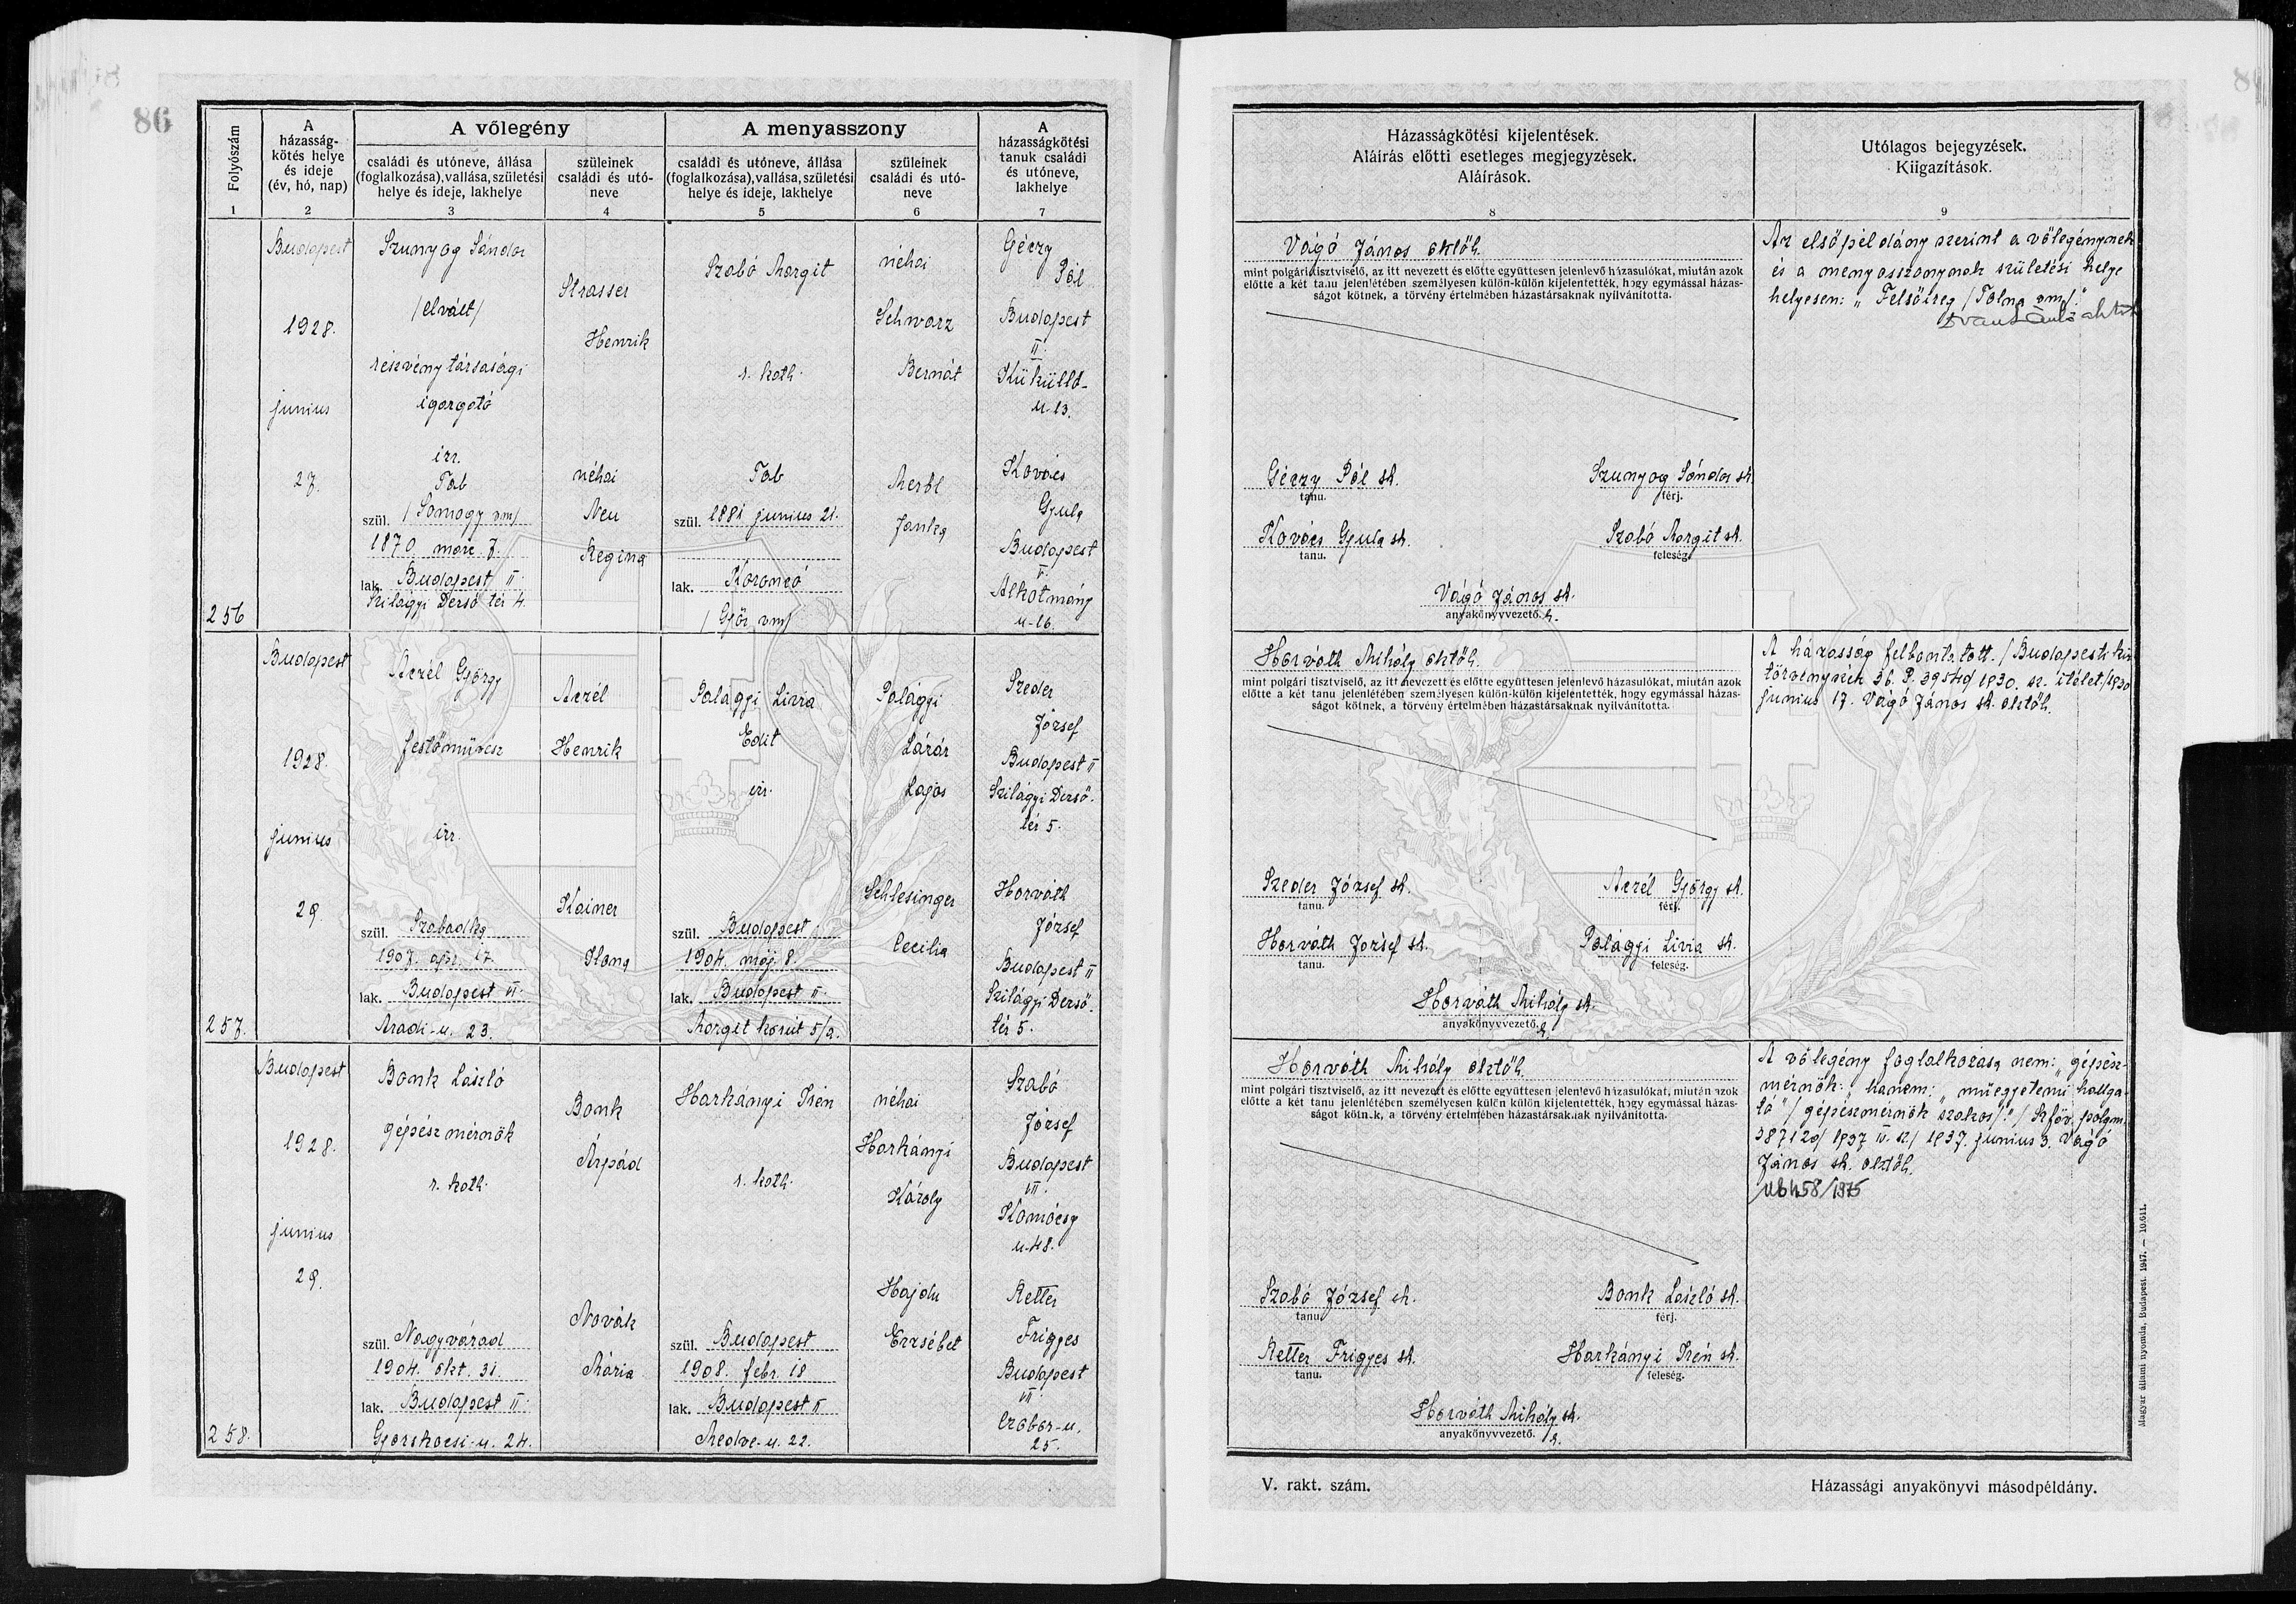 86
Folyószám
1
A
házasság-
kötés helye
és ideje
(év, hó, nap)
2
A vőlegény
családi és utóneve, állása
(foglalkozása), vallása, születési
helye és ideje, lakhelye
3
szüleinek
családi és utó-
neve
4
A menyasszony
családi és utóneve, állása
(foglalkozása), vallása, születési
helye és ideje, lakhelye
5
szüleinek
családi és utó-
neve
6
A
házasságkötési
tanuk családi
és utóneve,
lakhelye
7
256
Budapest
1928.
junius
27.
Szunyog Sándor
/elvált/
részvénytársasági
igazgató
izr.
Tab
szül. /Somogy vm/
1870 márc. 7.
lak. Budapest II.
Szilágyi Dezső tér 4.
Strasser
Henrik
néhai
Neu
Regina
Szabó Margit
r. kath.
Tab
szül. 1881 junius 21.
lak. Koroncó
/Győr vm/
néhai
Schwarz
Bernát
Merbl
Janka
Géczy
Pál
Budapest
II.
Küküllő-
u. 13.
Kovács
Gyula
Budapest
V.
Alkotmány
u. 16.
257.
Budapest
1928.
junius
29.
Aczél György
festőművész
izr.
szül. Szabadka
1907. apr. 17.
lak. Budapest VI.
Aradi-u. 23.
Aczél
Henrik
Kainer
Ilona
Palágyi Livia
Edit
izr.
szül. Budapest
1904. máj. 8.
lak. Budapest II.
Margit körút 5/a.
Palágyi
Lázár
Lajos
Schlesinger
Cecilia
Szeder
József
Budapest II
Szilágyi Dezső-
tér 5.
Horváth
József
Budapest II
Szilágyi Dezső-
tér 5.
258.
Budapest
1928.
junius
29.
Bonk László
gépészmérnök
r. kath.
szül. Nagyvárad
1904. okt. 31.
lak. Budapest II.
Gyorskocsi-u. 24.
Bonk
Árpád
Novák
Mária
Harkányi Irén
r. kath.
szül. Budapest
1908. febr. 18
lak. Budapest II
Medve-u. 22.
néhai
Harkányi
Károly
Hajdu
Erzsébet
Szabó
József
Budapest
VII.
Komócsy
u. 48.
Retter
Frigyes
Budapest
VII.
Czobor-u.
25.
Házasságkötési kijelentések.
Aláírás előtti esetleges megjegyzések.
Aláírások.
8
Utólagos bejegyzések.
Kiigazítások.
9
Vágó János aktőh.
mint polgári tisztviselő, az itt nevezett és előtte együttesen jelenlevő házasulókat, miután azok
előtte a két tanu jelenlétében személyesen külön-külön kijelentették, hogy egymással házas-
ságot kötnek, a törvény értelmében házastársaknak nyilvánította.
Géczy Pál sk.
tanu.
Szunyog Sándor sk.
férj.
Kovács Gyula sk.
tanu.
Szabó Margit sk.
feleség.
Vágó János sk.
anyakönyvvezető. h.
Az első példány szerint a vőlegénynek
és a menyasszonynak születési helye
helyesen: „Felsőireg /Tolna vm/."
Horváth Mihály aktőh.
mint polgári tisztviselő, az itt nevezett és előtte együttesen jelenlevő házasulókat, miután azok
előtte a két tanu jelenlétében személyesen külön-külön kijelentették, hogy egymással házas-
ságot kötnek, a törvény értelmében házastársaknak nyilvánította.
Szeder József sk.
tanu.
Aczél György sk.
férj.
Horváth József sk.
tanu.
Palágyi Livia sk.
feleség.
Horváth Mihály sk.
anyakönyvvezető. h.
A házasság felbontatott. /Budapesti kir.
törvényszék 36. P. 1930. sz. ítélet/ 1930
junius 17. Vágó János sk. aktőh.
Horváth Mihály aktőh.
mint polgári tisztviselő, az itt nevezett és előtte együttesen jelenlevő házasulókat, miután azok
előtte a két tanu jelenlétében személyesen külön külön kijelentették, hogy egymással házas-
ságot kötnek, a törvény értelmében házastársaknak nyilvánította.
Szabó József sk.
tanu.
Bonk László sk.
férj.
Retter Frigyes sk.
tanu.
Harkányi Irén sk.
feleség.
Horváth Mihály sk.
anyakönyvvezető. h.
A vőlegény foglalkozása nem: „gépész-
mérnök" hanem: „műegyetemi hallga-
tó" /gépészmérnök szakos/." /Szföv. polgm.
387120/1937 IV. sz./ 1937. junius 3. Vágó
János sk. aktőh.
V. rakt. szám.
Házassági anyakönyvi másodpéldány.
Magyar állami nyomda, Budapest. 1947. — 10.611.